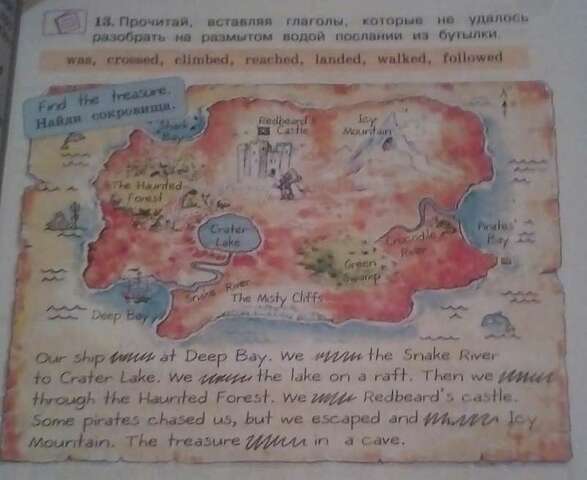 13. Прочитай, вставляя глаголы, которые не удалось
разобрать на размытом водой послании из бутылки.
was, crossed, climbed, reached, landed, walked, followed
Find the treasure.
Найди сокровища.
Shark
Bay
Redbeard's
Castle
Icy
Mountain
The Haunted
Forest
Crater
Lake
Pirates'
Bay
Crocodile
River
Green
Swamp
Snake River
The Misty Cliffs
Deep Bay
Our ship at Deep Bay. We the Snake River
to Crater Lake. We the lake on a raft. Then we
through the Haunted Forest. We Redbeard's castle.
Some pirates chased us, but we escaped and Icy
Mountain. The treasure in a cave.